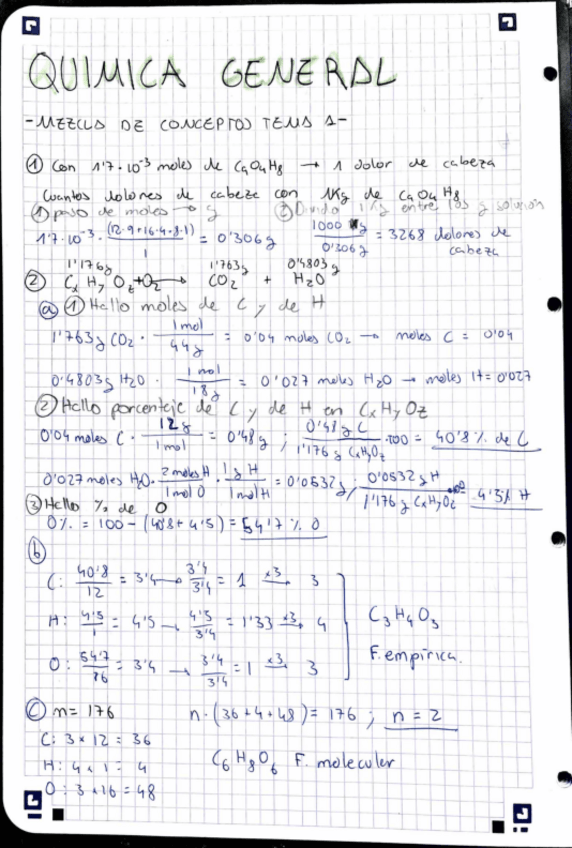 QUIMICA GENERAL
-MEZCLA DE CONCEPTOS TEMA 1-
① Con 1'7·10⁻³ moles de C₉O₄H₈ → 1 dolor de cabeza
Cuantos dolores de cabeza con 1Kg de C₉O₄H₈
① paso de moles → g ② Divido 1 Kg entre los g solución
1'7·10⁻³ · (12·9+16·4+8·1)/1 = 0'306g 1000 g/0'306g = 3268 dolores de cabeza
1'176g 1'763g 0'4803g
② CxHyOz+O₂ → CO₂ + H₂O
ⓐ ① Hallo moles de C y de H
1'763g CO₂ · 1mol/44g = 0'04 moles CO₂ → moles C = 0'04
0'4803g H₂O · 1mol/18g = 0'027 moles H₂O → moles H = 0'027
② Hallo porcentaje de C y de H en CxHyOz
0'04 moles C · 12g/1mol = 0'48g ; 0'48g C/1'176g CxHyOz ·100 = 40'8% de C
0'027 moles H₂O · 2molesH/1molO · 1gH/1molH = 0'0532g / 0'0532gH/1'176g CxHyOz = 4'5% H
③ Hallo % de O
O% = 100 - (40'8 + 4'5) = 54'7% O
ⓑ
C: 40'8/12 = 3'4 → 3'4/3'4 = 1 ×3→ 3
H: 4'5/1 = 4'5 → 4'5/3'4 = 1'33 ×3→ 4 C₃H₄O₃
O: 54'7/16 = 3'4 → 3'4/3'4 = 1 ×3→ 3 F. empírica.
ⓒ n = 176 n·(36+4+48) = 176 ; n = 2
C: 3 × 12 = 36
H: 4 × 1 = 4 C₆H₈O₆ F. molecular
O: 3 × 16 = 48